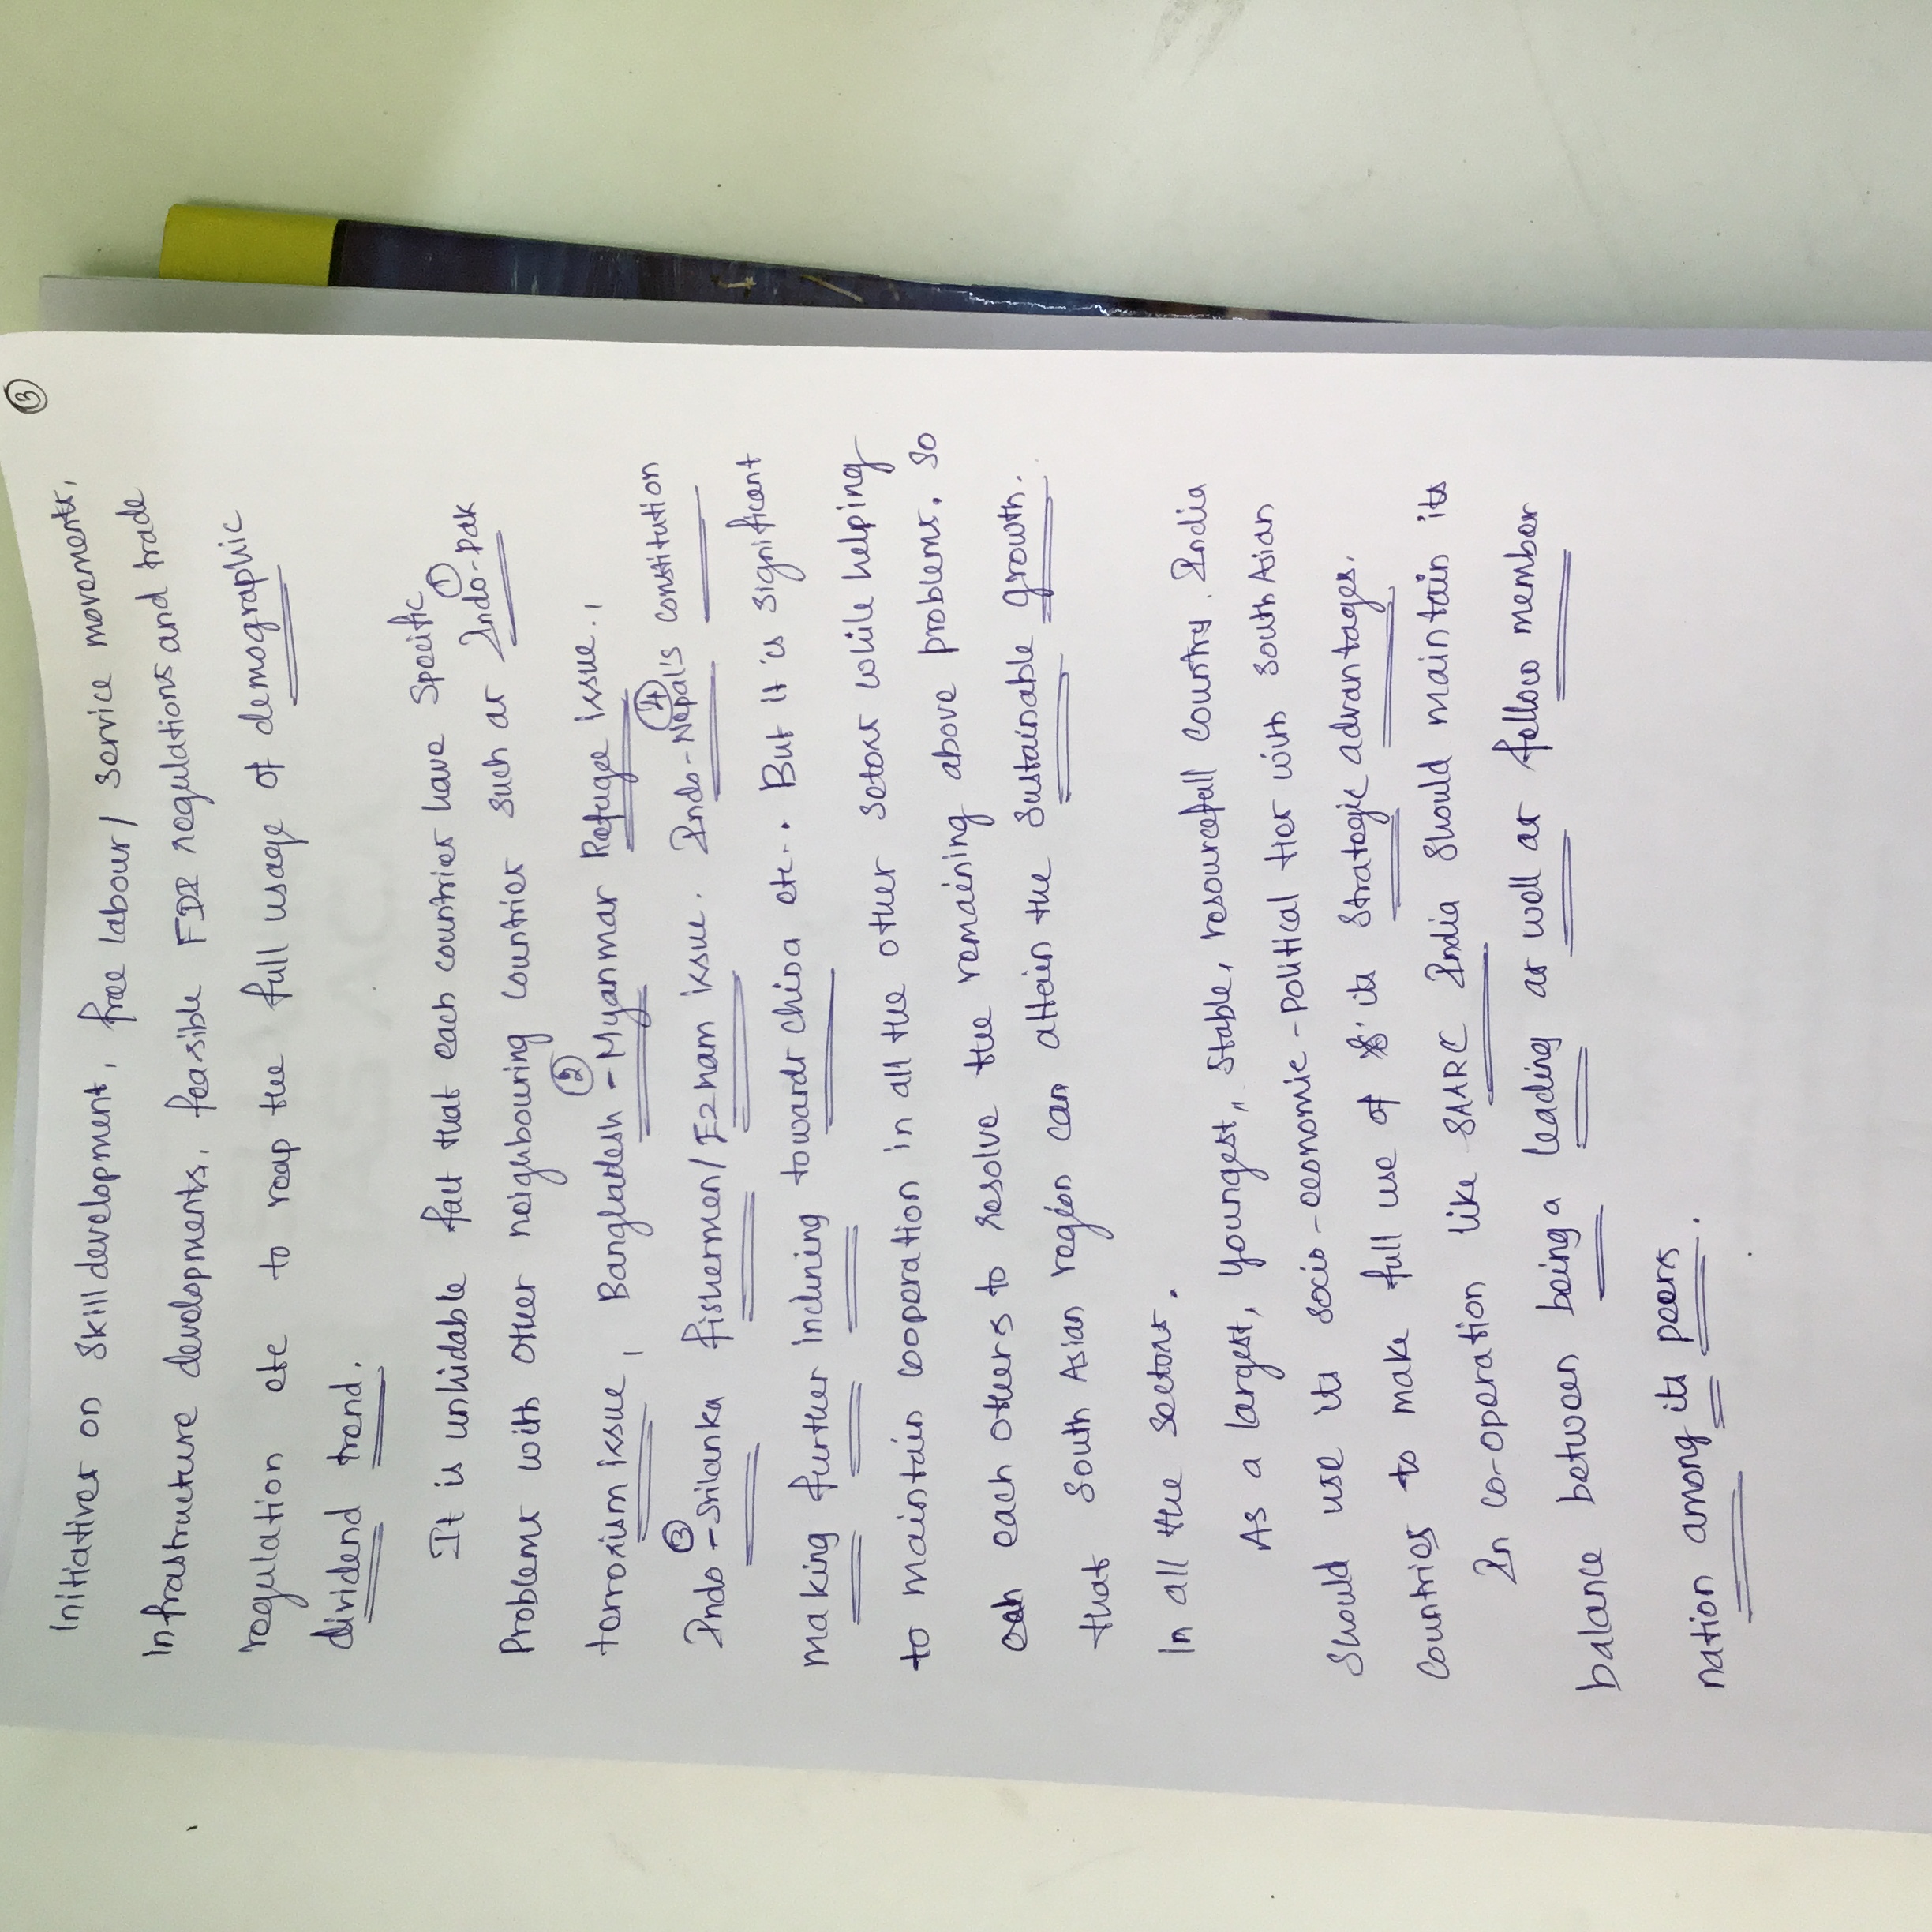 ③
Initiatives on Skill development, free labour/ service movements,
Infrastructure developments, feasible FDI regulations and trade
regulation etc to reap the full usage of demographic
dividend trend.
It is unhidable fact that each countries have specific
Problems with other neighbouring countries such as ① Indo-Pak
terrorism issue, ② Bangladesh - Myanmar Refugee issue.,
③ Indo - Srilanka fishermen/ Ezham issue. ④ Indo-Nepal's constitution
making further inclining towards china etc.. But it is significant
to maintain cooperation in all the other sectors while helping
each others to resolve the remaining above problems. So
that South Asian region can attain the sustainable growth.
In all the sectors.
As a largest, youngest, stable, resourcefull country. India
should use its socio-economic-political ties with south Asian
Countries to make full use of its strategic advantages.
In co-operation like SAARC India should maintain its
balance between being a leading as well as fellow member
nation among its peers.